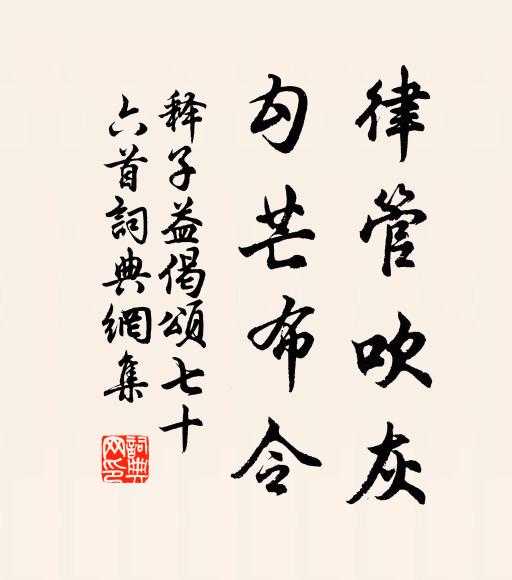 律管吹灰
勾芒布令
釋子益偈頌七十
六首詞典網集
詞典网印